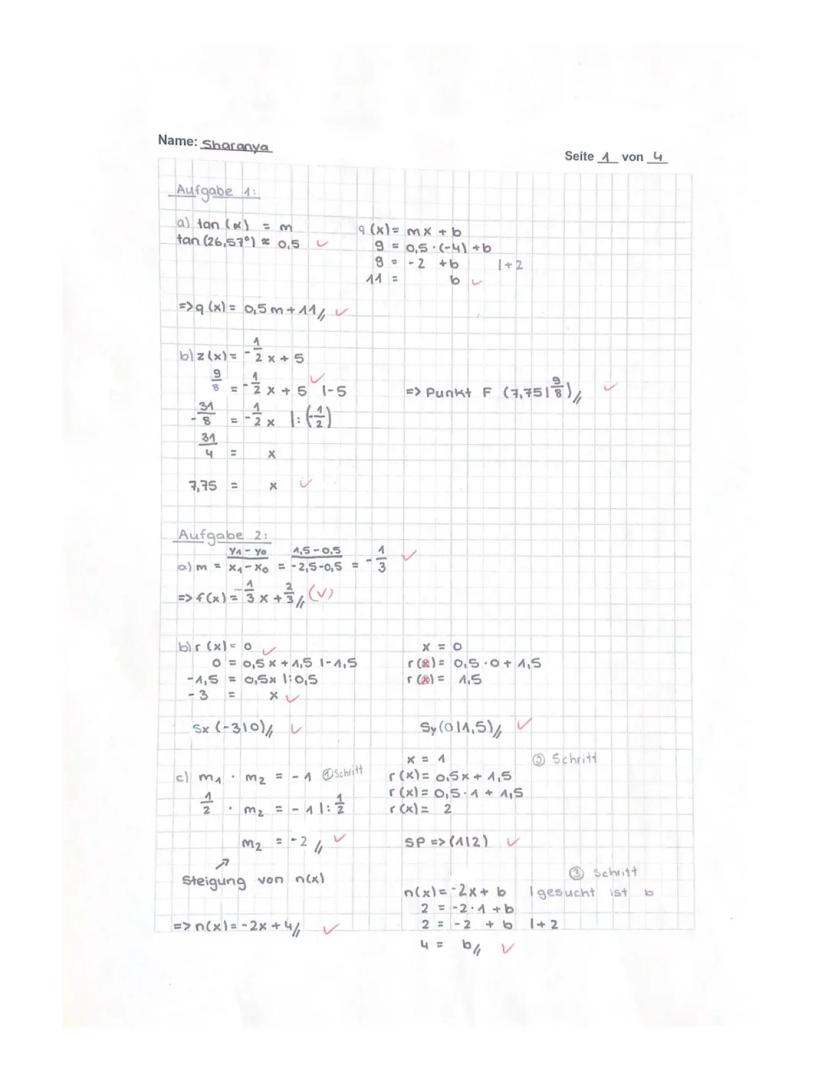 Name: Sharanya
Seite 1 von 4
Aufgabe 1:
a) tan (α) = m
tan (26,57°) ≈ 0,5 ✓
q (x) = mx + b
9 = 0,5 · (-4) + b
9 = -2 + b |+2
11 = b ✓
=> q (x) = 0,5m + 11// ✓
b) z (x) = -1/2 x + 5
9/8 = -1/2 x + 5 |-5 ✓
-31/8 = -1/2 x |: (-1/2)
31/4 = x
7,75 = x ✓
=> Punkt F (7,75|9/8)// ✓
Aufgabe 2:
a) m = y1 - y0 / x1 - x0 = 1,5 - 0,5 / -2,5 - 0,5 = -1/3 ✓
=> f (x) = -1/3 x + 2/3 // (✓)
b) r (x) = 0 ✓
0 = 0,5x + 1,5 |-1,5
-1,5 = 0,5x |: 0,5
-3 = x ✓
Sx (-3|0)// ✓
x = 0
r ( ) = 0,5 · 0 + 1,5
r ( ) = 1,5
Sy (0|1,5)// ✓
c) m1 · m2 = -1 ① Schritt
1/2 · m2 = -1 |: 1/2
m2 = -2 // ✓
Steigung von n(x)
=> n(x) = -2x + 4// ✓
x = 1 ② Schritt
r (x) = 0,5x + 1,5
r (x) = 0,5 · 1 + 1,5
r (x) = 2
SP => (1|2) ✓
③ Schritt
n(x) = -2x + b | gesucht ist b
2 = -2 · 1 + b
2 = -2 + b |+2
4 = b// ✓